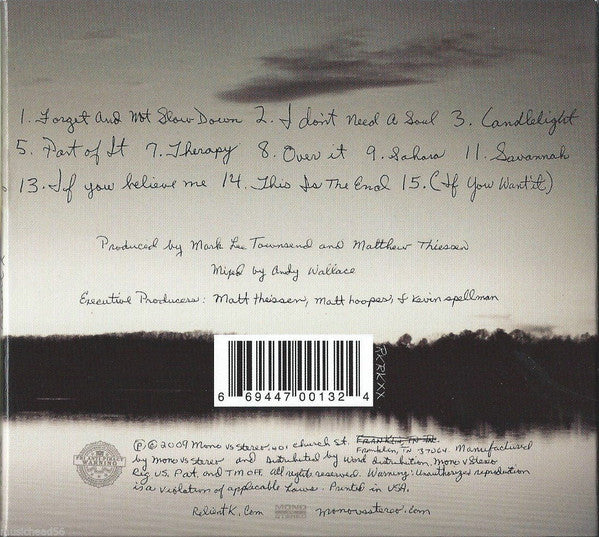 1. Forget And Not Slow Down 2. I don't Need A Soul 3. Candlelight
5. Part of It 7. Therapy 8. Over it 9. Sahara 11. Savannah
13. If you believe me 14. This Is The End 15. (If You Want it)
Produced by Mark Lee Townsend and Matthew Thiessen
Mixed by Andy Wallace
Executive Producers: Matt thiessen, Matt hoopes, & Kevin spellman
RKRKXX
6 69447 00132 4
℗ © 2009 Mono vs Stereo. 401 church St. Franklin, TN
Franklin, TN 37064. Manufactured
by Mono vs Stereo and Distributed by Word distribution. Mono v Stereo
Reg US. Pat. and TM Off. All rights reserved. Warning: Unauthorized reproduction
is a violation of applicable Laws. Printed in USA.
WARNING
Relient K. Com MONO VS STEREO monovsstereo.com
musichead56